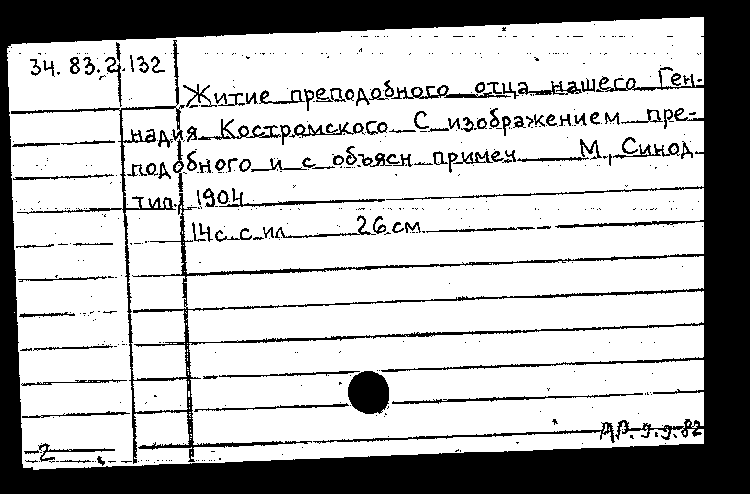 34. 83.2.132
Житие преподобного отца нашего Ген-
надия Костромского С изображением пре-
подобного и с объясн примеч М., Синод
тип., 1904
14с с ил 26см
2
АР. 9.9.82